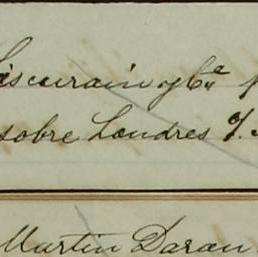 Liscurain y Ca
sobre Londres
Martin Daran